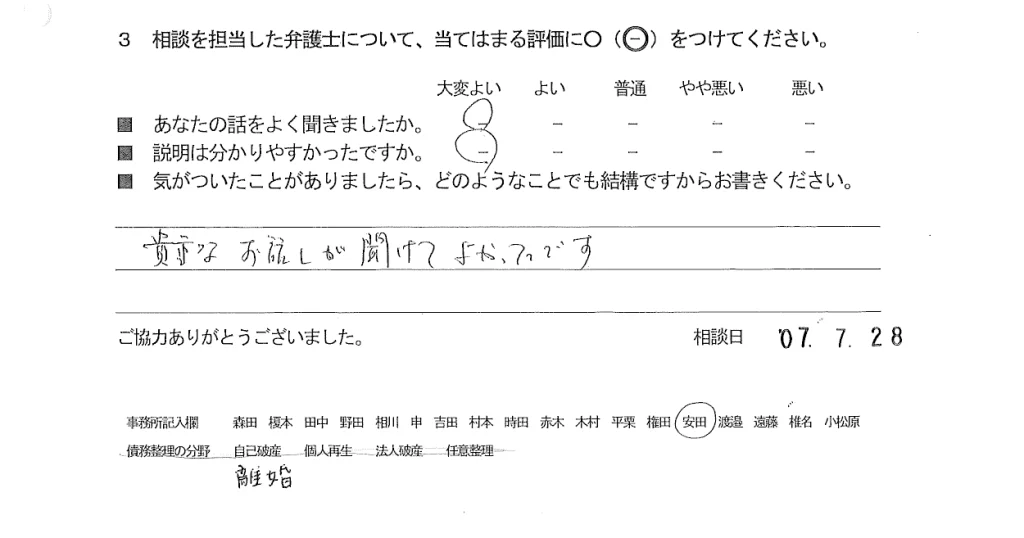 3 相談を担当した弁護士について、当てはまる評価に○(㊀)をつけてください。
大変よい よい 普通 やや悪い 悪い
■ あなたの話をよく聞きましたか。 － － － － －
■ 説明は分かりやすかったですか。 － － － － －
■ 気がついたことがありましたら、どのようなことでも結構ですからお書きください。
貴重な お話しが 聞けて よかったです
ご協力ありがとうございました。 相談日 '07. 7. 28
事務所記入欄 森田 榎本 田中 野田 相川 申 吉田 村本 時田 赤木 木村 平栗 権田 安田 渡邉 遠藤 椎名 小松原
債務整理の分野 自己破産 個人再生 法人破産 任意整理
離婚